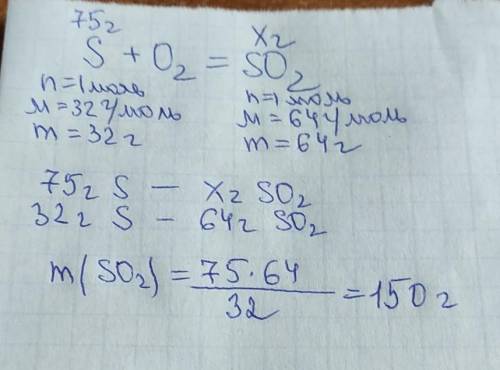 75г хг
S + O₂ = SO₂
n=1моль n=1моль
M=32г/моль M=64г/моль
m=32г m=64г
75г S – хг SO₂
32г S – 64г SO₂
m(SO₂) = 75·64 / 32 = 150г